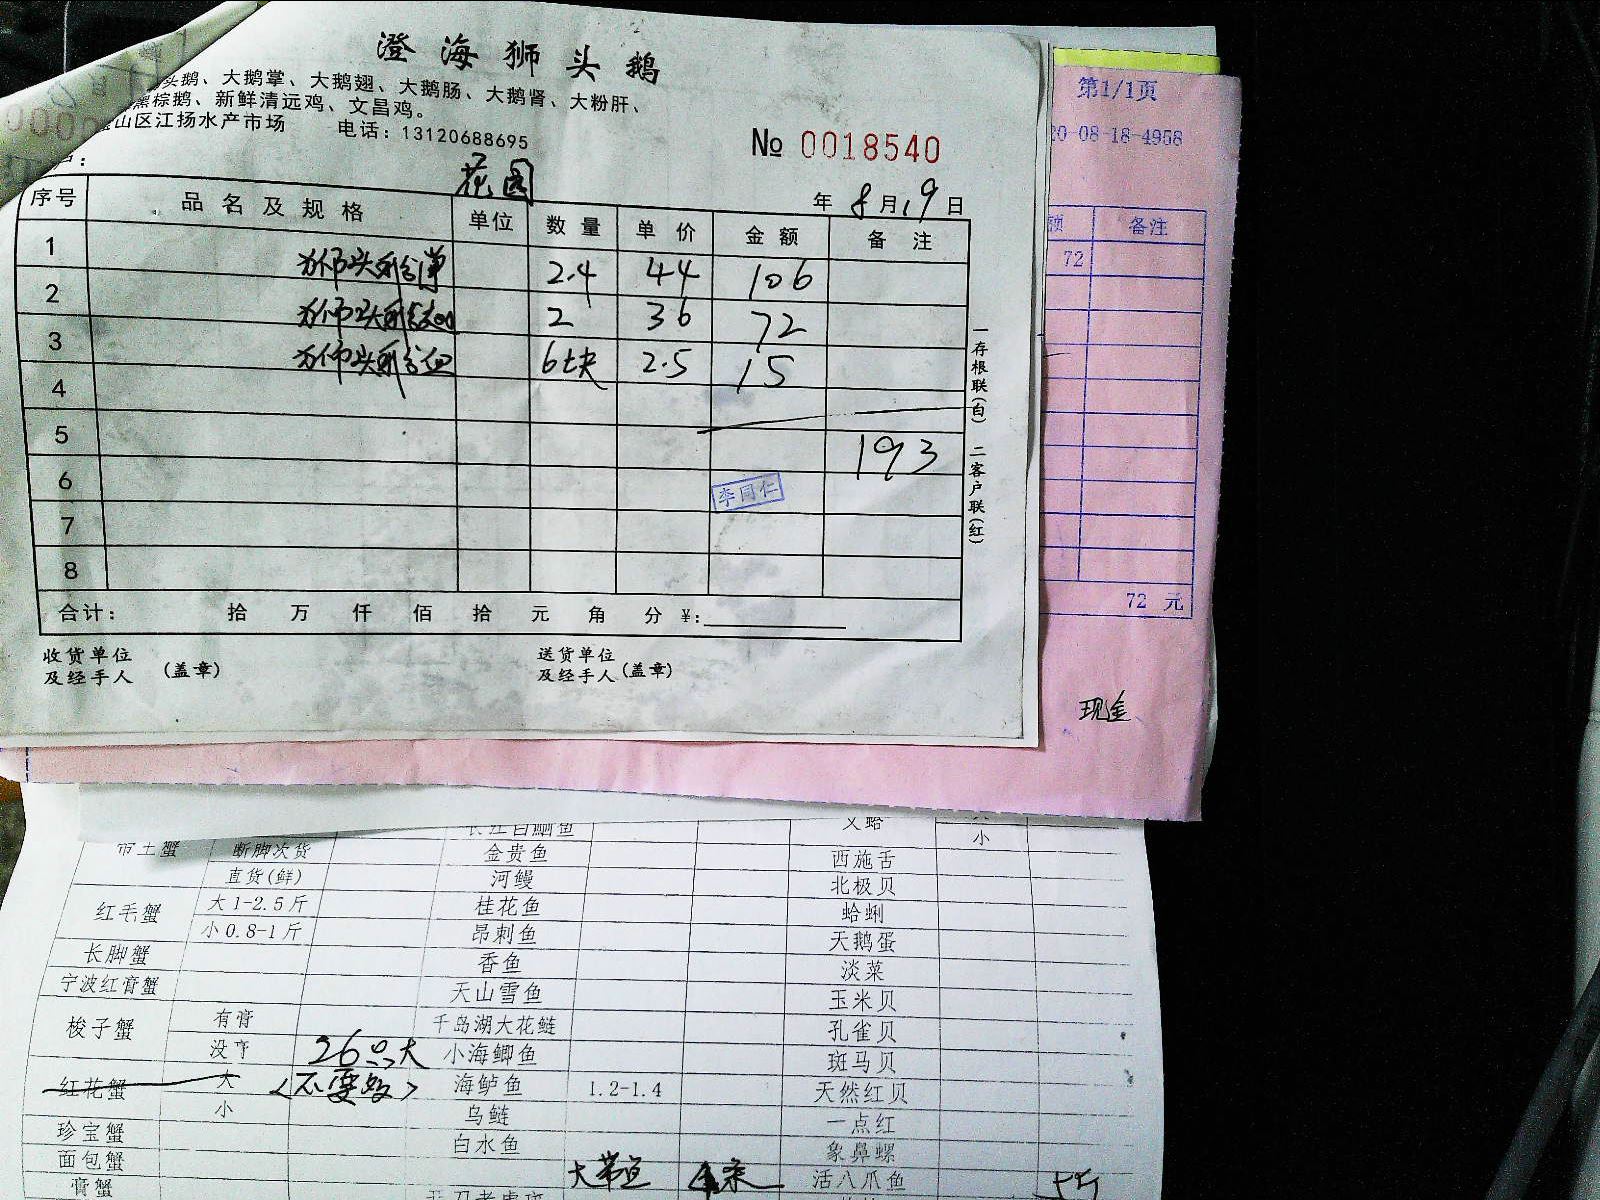 澄海狮头鹅
头鹅、大鹅掌、大鹅翅、大鹅肠、大鹅肾、大粉肝、
黑棕鹅、新鲜清远鸡、文昌鸡。
山区江扬水产市场 电话：13120688695
№ 0018540
花园
年 8月19日
序号 品名及规格 单位 数量 单价 金额 备注
1 2.4 44 106
2 2 36 72
3 6块 2.5 15
4
5 193
6 李同仁
7
8
合计： 拾 万 仟 佰 拾 元 角 分 ¥:
收货单位
及经手人 (盖章)
送货单位
及经手人 (盖章)
一存根联(白) 二客户联(红)
第1/1页
20-08-18-4958
额 备注
72
72 元
现金
小
断脚次货 金贵鱼 西施舌
直货(鲜) 河鳗 北极贝
红毛蟹 大1-2.5斤 桂花鱼 蛤蜊
小0.8-1斤 昂刺鱼 天鹅蛋
长脚蟹 香鱼 淡菜
宁波红膏蟹 天山雪鱼 玉米贝
梭子蟹 有膏 千岛湖大花鲢 孔雀贝
没 26只大 小海鲫鱼 斑马贝
红花蟹 大 海鲈鱼 1.2-1.4 天然红贝
小 乌鲢 一点红
珍宝蟹 白水鱼 象鼻螺
面包蟹 大带鱼 4条 活八爪鱼
膏蟹